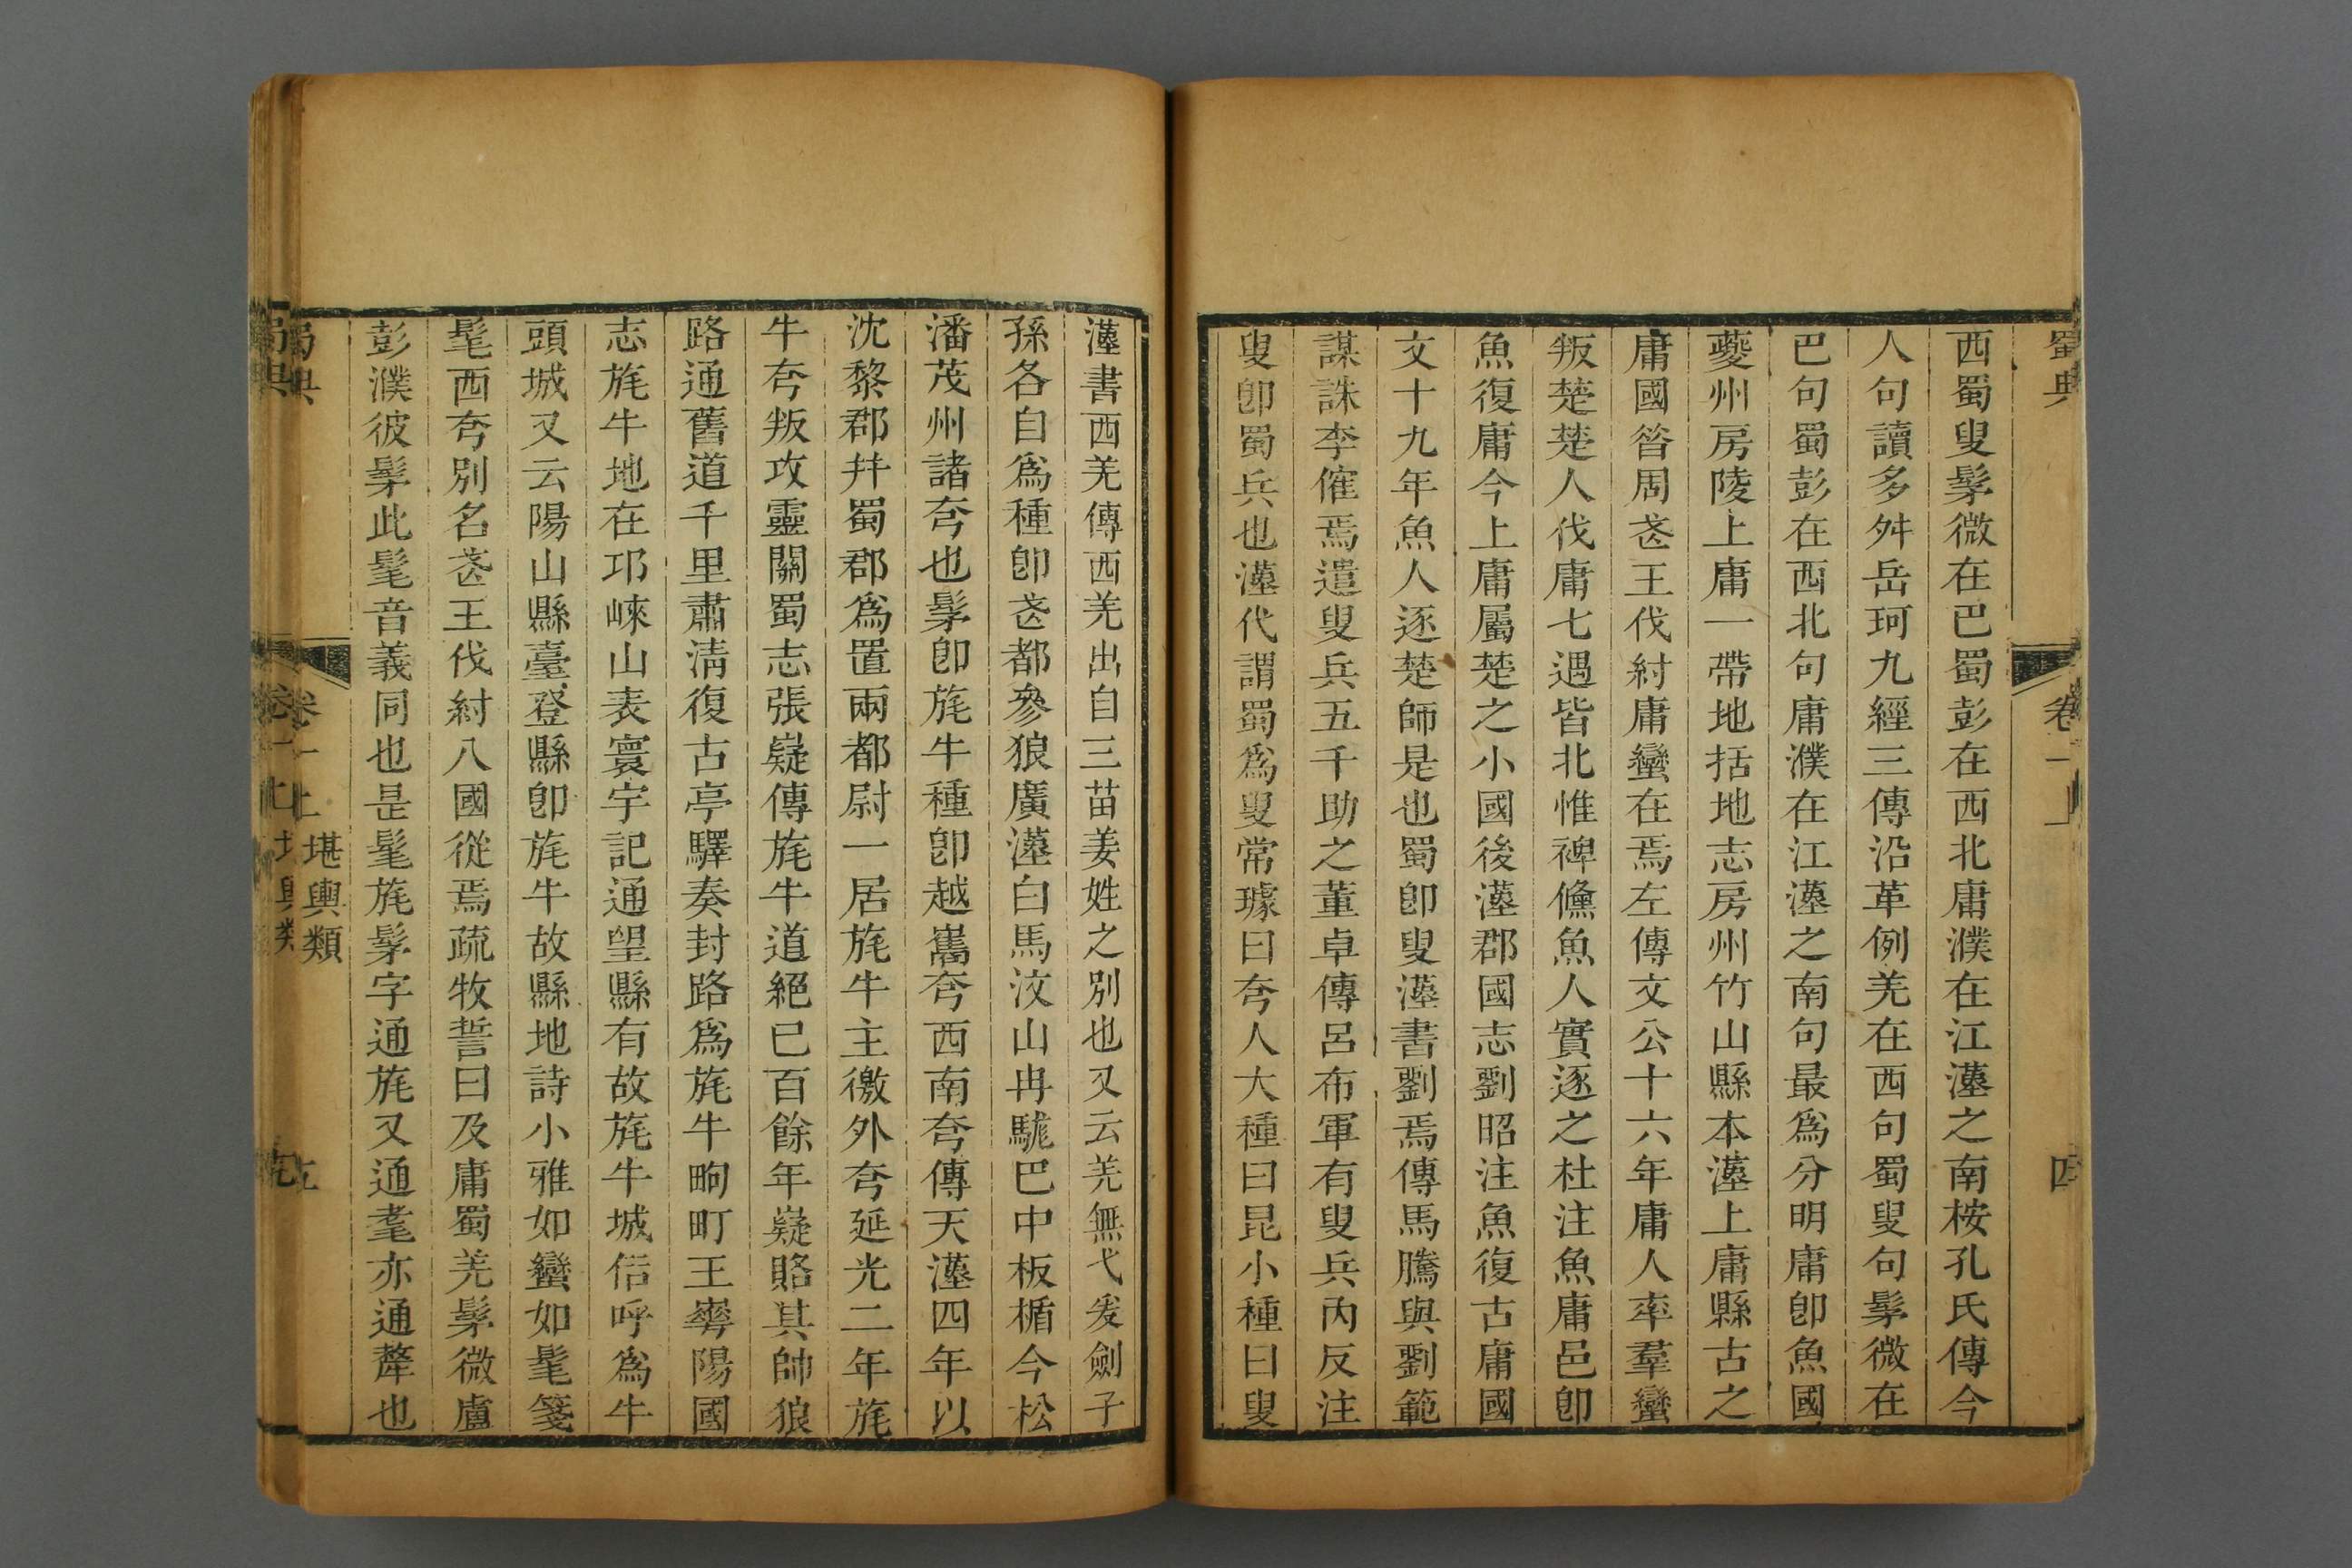 蜀典
卷一上
四
西蜀叟髳微在巴蜀彭在西北庸濮在江漢之南桉孔氏傳今
人句讀多舛岳珂九經三傳沿革例羌在西句蜀叟句髳微在
巴句蜀彭在西北句庸濮在江漢之南句最為分明庸卽魚國
夔州房陵上庸一帶地括地志房州竹山縣本漢上庸縣古之
庸國昝周武王伐紂庸蠻在焉左傳文公十六年庸人率羣蠻
叛楚楚人伐庸七遇皆北惟裨儵魚人實逐之杜注魚庸邑卽
魚復庸今上庸屬楚之小國後漢郡國志劉昭注魚復古庸國
文十九年魚人逐楚師是也蜀卽叟漢書劉焉傳馬騰與劉範
謀誅李傕焉遣叟兵五千助之董卓傳呂布軍有叟兵內反注
叟卽蜀兵也漢代謂蜀為叟常璩曰夷人大種曰昆小種曰叟
漢書西羌傳西羌出自三苗姜姓之別也又云羌無弋爰劍子
孫各自為種卽武都參狼廣漢白馬汶山冉駹巴中板楯今松
潘茂州諸夷也髳卽旄牛種卽越巂夷西南夷傳天漢四年以
沈黎郡幷蜀郡為置兩都尉一居旄牛主徼外夷延光二年旄
牛夷叛攻靈關蜀志張嶷傳旄牛道絕已百餘年嶷賂其帥狼
路通舊道千里肅淸復古亭驛奏封路為旄牛㽛町王華陽國
志旄牛地在邛崍山表寰宇記通望縣有故旄牛城俗呼為牛
頭城又云陽山縣臺登縣卽旄牛故縣地詩小雅如蠻如髦箋
髦西夷別名武王伐紂八國從焉疏牧誓曰及庸蜀羌髳微盧
彭濮彼髳此髦音義同也是髦旄髳字通旄又通髦亦通犛也
堪輿類
五